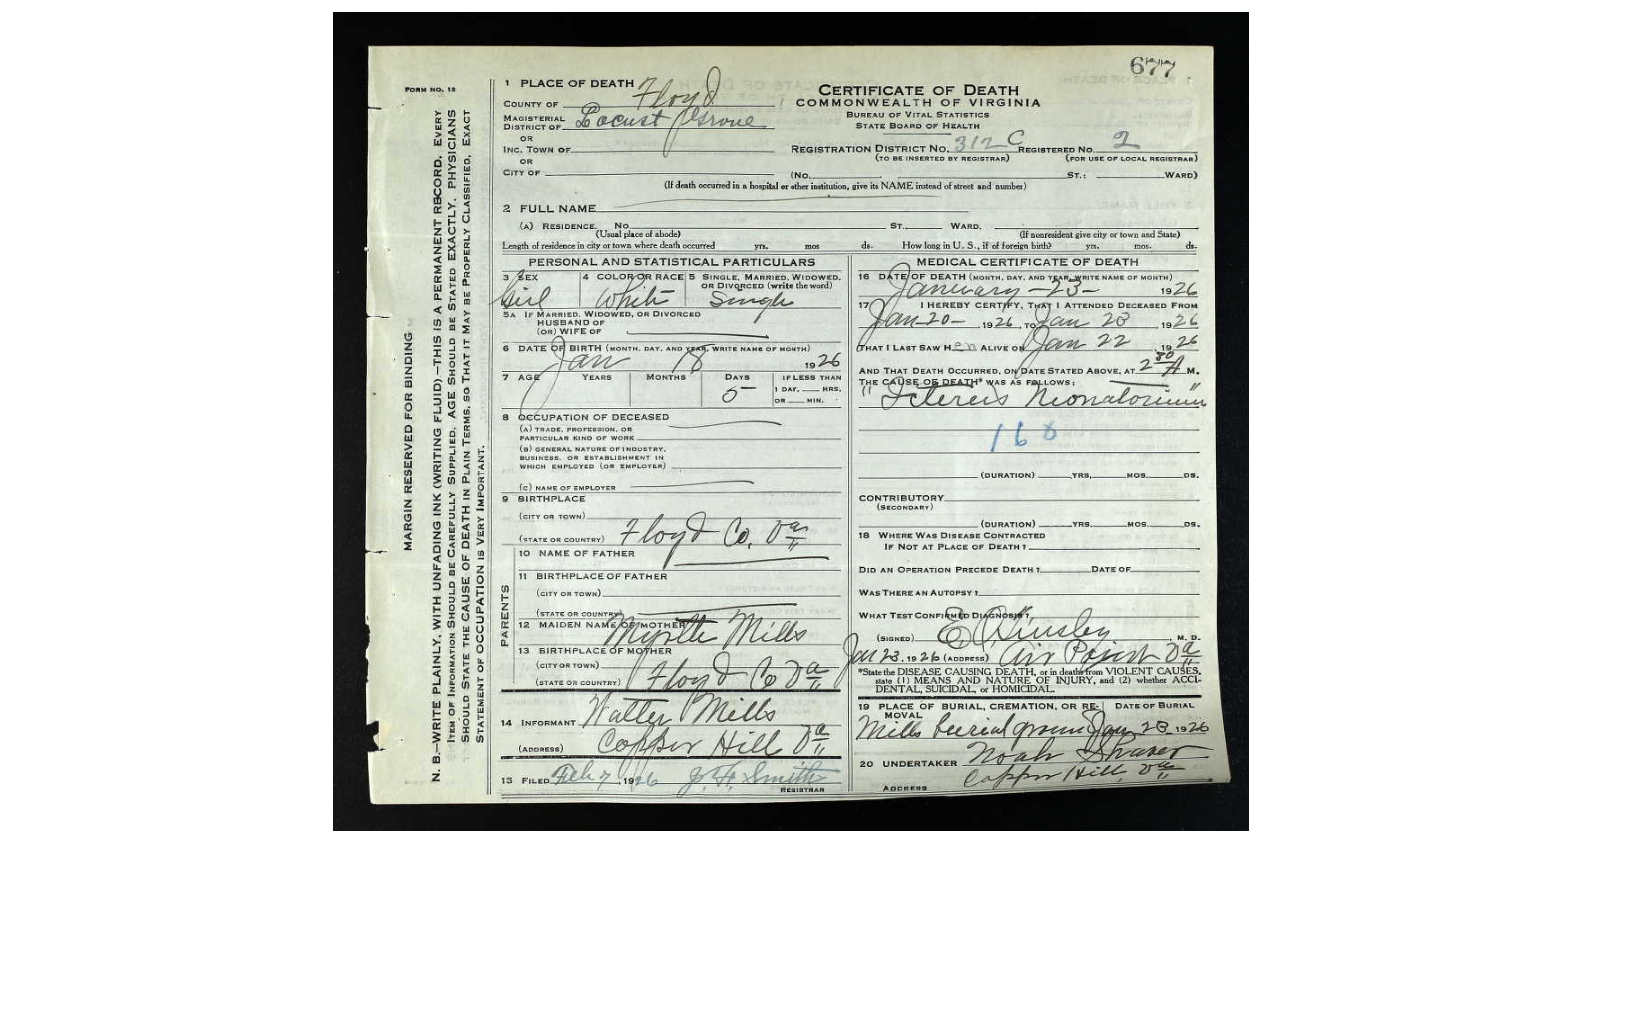 677
FORM NO. 12
MARGIN RESERVED FOR BINDING
N. B.—WRITE PLAINLY, WITH UNFADING INK (WRITING FLUID)—THIS IS A PERMANENT RECORD. EVERY
ITEM OF INFORMATION SHOULD BE CAREFULLY SUPPLIED. AGE SHOULD BE STATED EXACTLY. PHYSICIANS
SHOULD STATE THE CAUSE OF DEATH IN PLAIN TERMS, SO THAT IT MAY BE PROPERLY CLASSIFIED. EXACT
STATEMENT OF OCCUPATION IS VERY IMPORTANT.
1 PLACE OF DEATH
COUNTY OF Floyd
MAGISTERIAL DISTRICT OF Locust Grove
OR
INC. TOWN OF
OR
CITY OF
CERTIFICATE OF DEATH
COMMONWEALTH OF VIRGINIA
BUREAU OF VITAL STATISTICS
STATE BOARD OF HEALTH
REGISTRATION DISTRICT NO. 312 C REGISTERED NO. 2
(TO BE INSERTED BY REGISTRAR) (FOR USE OF LOCAL REGISTRAR)
(NO. ST.: WARD)
(If death occurred in a hospital or other institution, give its NAME instead of street and number)
2 FULL NAME
(A) RESIDENCE. No. ST., WARD.
(Usual place of abode) (If nonresident give city or town and State)
Length of residence in city or town where death occurred yrs. mos ds. How long in U. S., if of foreign birth? yrs. mos. ds.
PERSONAL AND STATISTICAL PARTICULARS
3 SEX 4 COLOR OR RACE 5 SINGLE, MARRIED, WIDOWED, OR DIVORCED (write the word)
Girl White Single
5A IF MARRIED, WIDOWED, OR DIVORCED
HUSBAND OF
(OR) WIFE OF
6 DATE OF BIRTH (MONTH, DAY, AND YEAR, WRITE NAME OF MONTH)
Jan 18 1926
7 AGE YEARS MONTHS DAYS IF LESS THAN
5 1 DAY, HRS.
OR MIN.
8 OCCUPATION OF DECEASED
(A) TRADE, PROFESSION, OR
PARTICULAR KIND OF WORK
(B) GENERAL NATURE OF INDUSTRY,
BUSINESS, OR ESTABLISHMENT IN
WHICH EMPLOYED (OR EMPLOYER)
(C) NAME OF EMPLOYER
9 BIRTHPLACE
(CITY OR TOWN)
(STATE OR COUNTRY) Floyd Co, Va
PARENTS
10 NAME OF FATHER
11 BIRTHPLACE OF FATHER
(CITY OR TOWN)
(STATE OR COUNTRY)
12 MAIDEN NAME OF MOTHER Myrtle Mills
13 BIRTHPLACE OF MOTHER
(CITY OR TOWN)
(STATE OR COUNTRY) Floyd Co Va
14 INFORMANT Walter Mills
(ADDRESS) Copper Hill Va
15 FILED Feb 7, 1926 J. H. Smith
REGISTRAR
MEDICAL CERTIFICATE OF DEATH
16 DATE OF DEATH (MONTH, DAY, AND YEAR, WRITE NAME OF MONTH)
January -23- 1926
17 I HEREBY CERTIFY, THAT I ATTENDED DECEASED FROM
Jan 20-, 1926, TO Jan 23, 1926
THAT I LAST SAW HER ALIVE ON Jan 22, 1926
AND THAT DEATH OCCURRED, ON DATE STATED ABOVE, AT 2 30 A M.
THE CAUSE OF DEATH* WAS AS FOLLOWS:
"Ictereis Neonatorium"
168
(DURATION) YRS. MOS. DS.
CONTRIBUTORY
(SECONDARY)
(DURATION) YRS. MOS. DS.
18 WHERE WAS DISEASE CONTRACTED
IF NOT AT PLACE OF DEATH?
DID AN OPERATION PRECEDE DEATH? DATE OF
WAS THERE AN AUTOPSY?
WHAT TEST CONFIRMED DIAGNOSIS?
(SIGNED) , M. D.
Jan 23, 1926 (ADDRESS) Air Point Va
*State the DISEASE CAUSING DEATH, or in deaths from VIOLENT CAUSES,
state (1) MEANS AND NATURE OF INJURY, and (2) whether ACCI-
DENTAL, SUICIDAL, or HOMICIDAL.
19 PLACE OF BURIAL, CREMATION, OR RE- DATE OF BURIAL
MOVAL
Mills burial ground Jan 23 1926
20 UNDERTAKER Noah Shaver
ADDRESS Copper Hill, Va